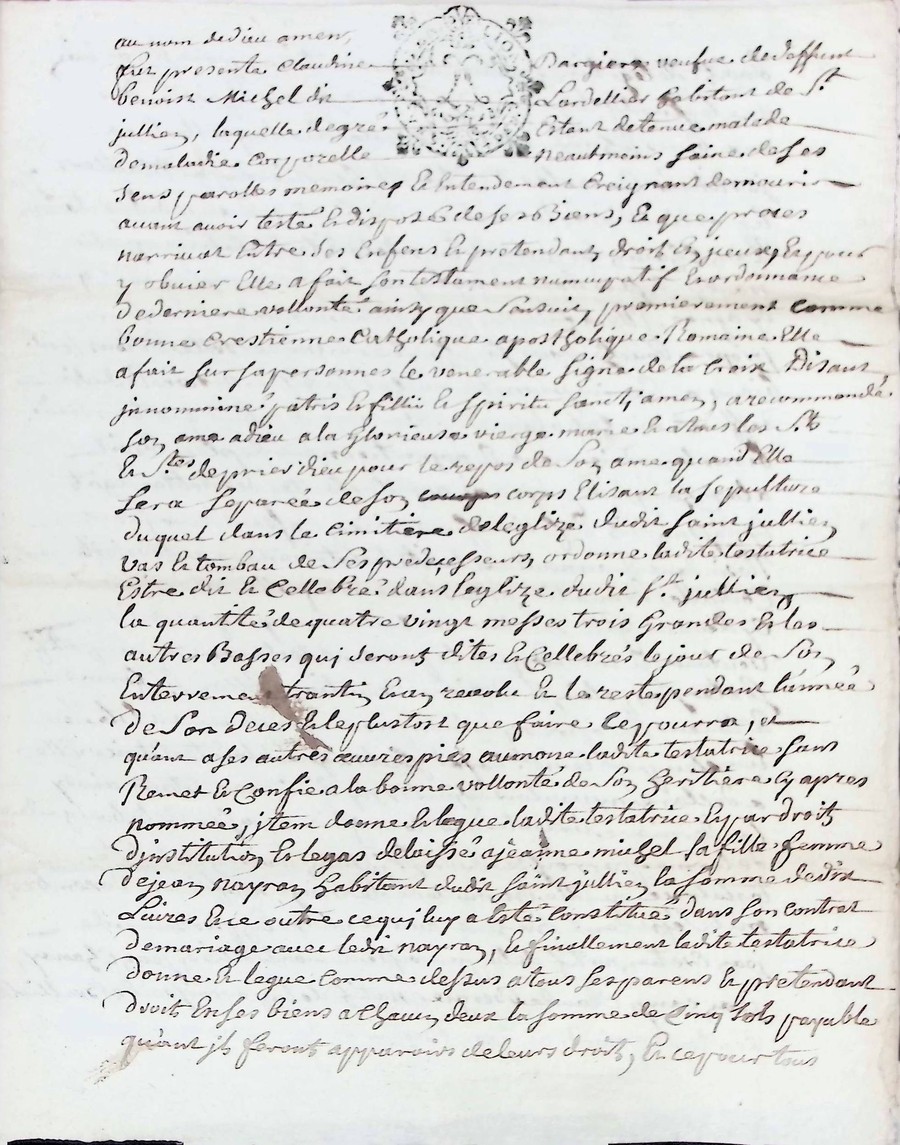 au nom de dieu amen,
fut presente Claudine Bargiere veufve de deffunt
benoist Michel dit Lardellier habitant de St
jullien, laquelle de gré Estant detenue malede
de maladie Corporelle neautmoins saine de ses
sens parolles memoires Et Entendement Creignant de mourir
avant avoir testé Et disposé de ses Biens, Et que proces
narrivat Entre ses Enfens Et pretendant droit En jceux, Et pour
y obvier Elle a fait son testament nuncupatif Et ordonnance
de derniere vollonté ainsy que sensuit, premierement comme
bonne Crestienne Catholique apostholique Romaine Elle
a fait sur sa personnes le venerable signe de la Croix Disant
jn nominine patris Et fillii Et spiritu sancti, amen, a recommandé
son ame a dieu a la Glorieuse vierge marie Et a tous les Sts
Et Stes de prier dieu pour le repos de son ame quand Elle
sera separeé de son corps Elisant la sepulture
duquel dans le Cimitiere de leglize dudit saint jullien
vas Et tombau de ses predecesseurs, ordonne ladite testatrice
Estre dit Et Cellebré dans leglize dudit St jullien
la quantité de quatre vingt messes trois Grandes Et les
autres Basses qui seront dites Et Cellebrés le jour de son
Enterrement trantin Et an revolu Et le reste pendant lanneé
de son deces Et le plustost que faire ce pourra, et
quant a ses autres œuvres pies aumone ladite testatrice sans
Remet Et Confie a la bonne vollonté de son heritiere Cy apres
nommeé, jtem donne Et legue ladite testatrice Et par droit
djnstitution Et legas delaissé a jeanne michel sa fille femme
de jean nayran habitant dudit saint jullien la somme de dix
Livres Et ce outre ce qui luy a Esté Constitué dans son contrat
de mariage avec ledit nayran, Et finallement ladite testatrice
donne Et legue Comme dessus a tous ses parens Et pretendant
droit En ses biens a Chacun deux la somme de Cinq sols payable
quant jls feront apparoir de leurs droit, Et ce pour tous